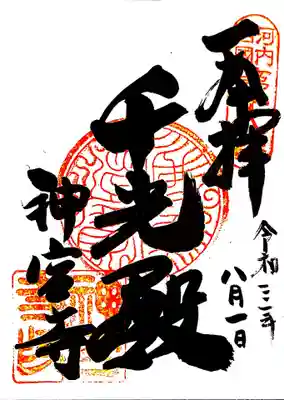 奉拝
令和三年
八月一日
千光殿
神宮寺